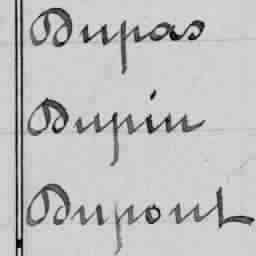 Dupas
Dupin
Dupont